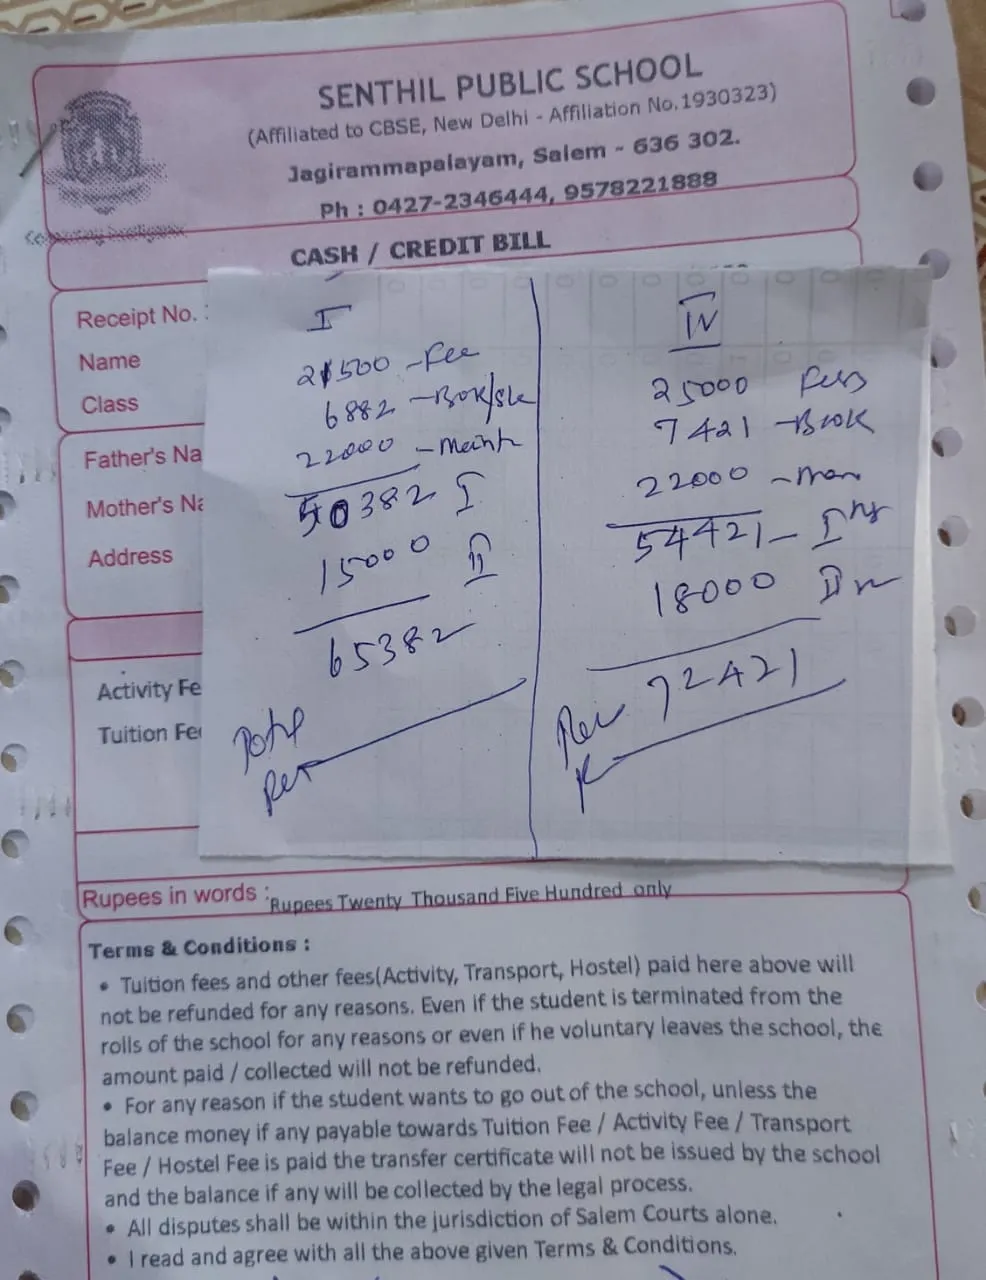 SENTHIL PUBLIC SCHOOL
(Affiliated to CBSE, New Delhi - Affiliation No.1930323)
Jagirammapalayam, Salem - 636 302.
Ph : 0427-2346444, 9578221888
CASH / CREDIT BILL
Receipt No. :
Name
Class
Father's Na
Mother's Na
Address
Activity Fe
Tuition Fe
I
21500 - Fee
6882 - Book/
22000 - Maint
50382 I
15000 II
65382
IV
25000 Fees
7421 - Book
22000 - Man
54421 - I
18000 II
72421
Rupees in words : Rupees Twenty Thousand Five Hundred only
Terms & Conditions :
• Tuition fees and other fees(Activity, Transport, Hostel) paid here above will
not be refunded for any reasons. Even if the student is terminated from the
rolls of the school for any reasons or even if he voluntary leaves the school, the
amount paid / collected will not be refunded.
• For any reason if the student wants to go out of the school, unless the
balance money if any payable towards Tuition Fee / Activity Fee / Transport
Fee / Hostel Fee is paid the transfer certificate will not be issued by the school
and the balance if any will be collected by the legal process.
• All disputes shall be within the jurisdiction of Salem Courts alone.
• I read and agree with all the above given Terms & Conditions.